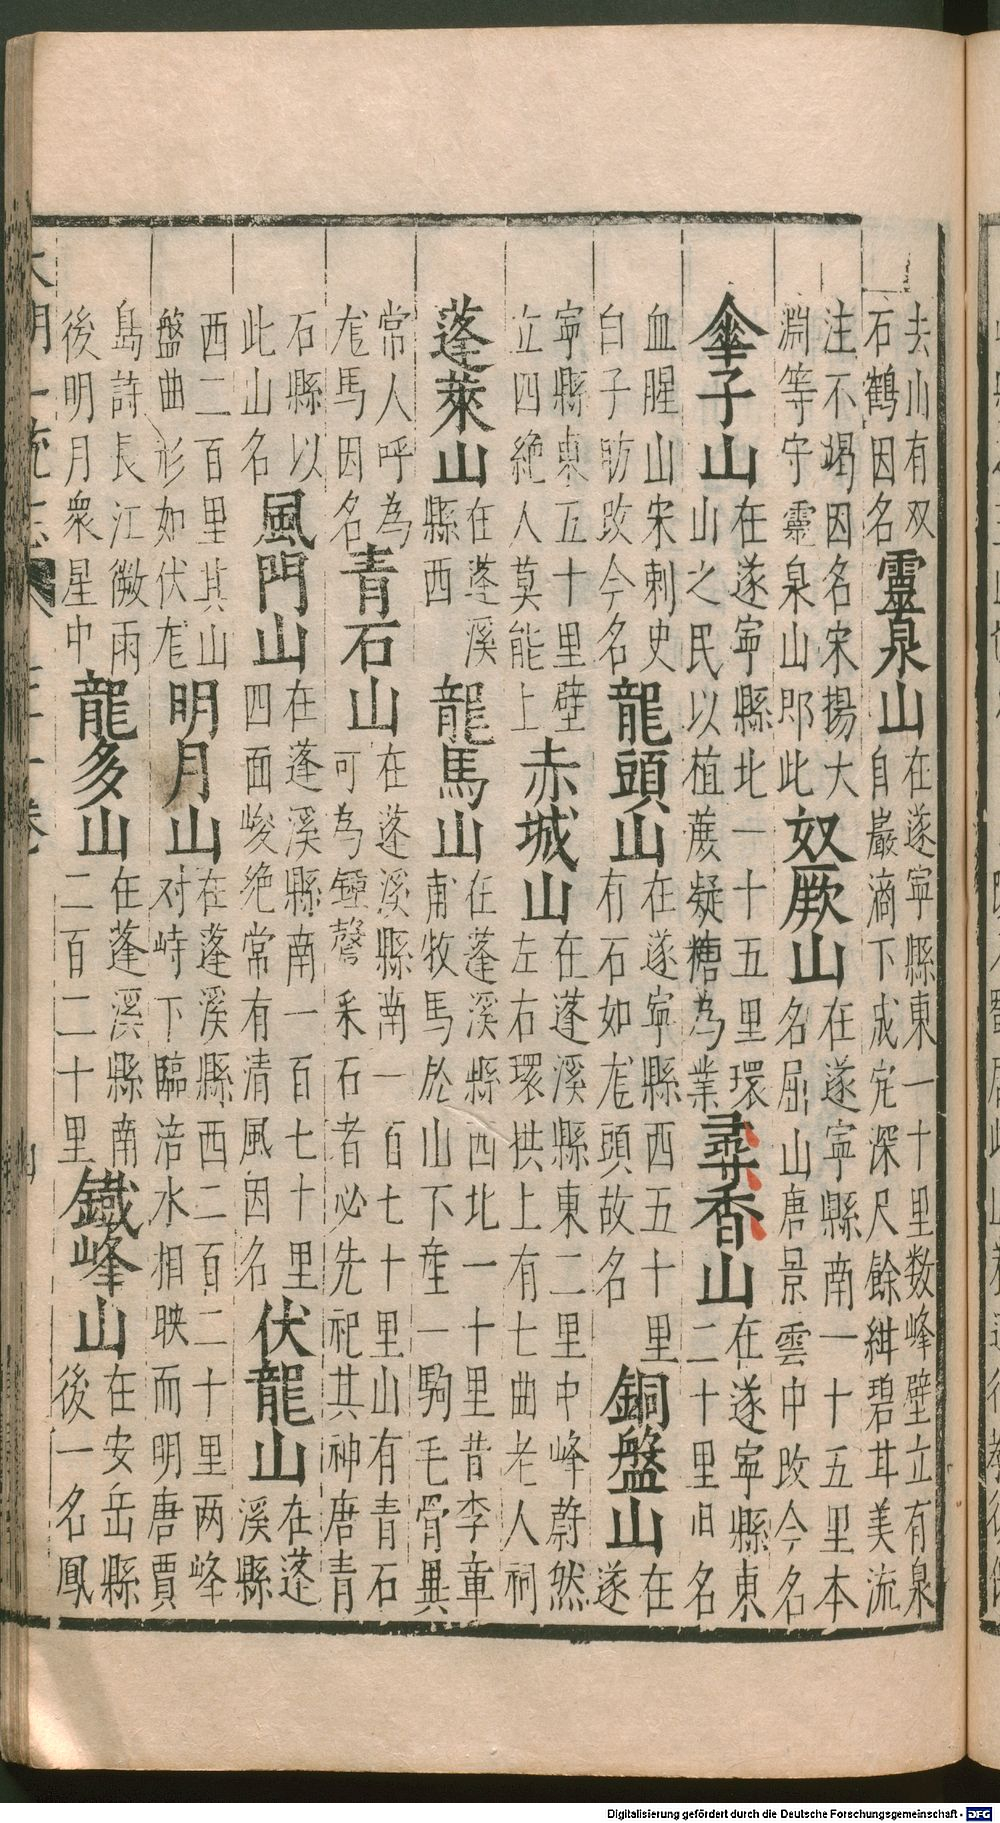 去川有双石鶴因名靈泉山在遂寧縣東一十里数峰壁立有泉自巖滴下成穴深尺餘紺碧甘美流
注不竭因名宋揚大淵等守靈泉山郎此厥山在遂寧縣南一十五里本名屈山唐景雲中改今名
傘子山在遂寧縣北一十五里環山之民以植蔗凝糖為業尋香山在遂寧縣東二十里旧名
血腥山宋刺史白子昉改今名龍頭山在遂寧縣西五十里有石如龙頭故名銅盤山在遂
寧縣東五十里壁立四絶人莫能上赤城山在蓬溪縣東二里中峰蔚然左右環拱上有七曲老人祠
蓬萊山在蓬溪縣西龍馬山在蓬溪縣西北一十里昔李童甫牧馬於山下産一駒毛骨異
常人呼為龙馬因名青石山在蓬溪縣南一百七十里山有青石可為鍾磬采石者必先祀其神唐青
石縣以此山名風門山在蓬溪縣南一百七十里四面峻絶常有清風因名伏龍山在蓬溪縣
西二百里其山盤曲形如伏龙明月山在蓬溪縣西二百二十里两峰对峙下臨涪水相映而明唐賈
島詩長江微雨後明月衆星中龍多山在蓬溪縣南二百二十里鐵峰山在安岳縣後一名鳳
大明一統志
Digitalisierung gefördert durch die Deutsche Forschungsgemeinschaft - DFG